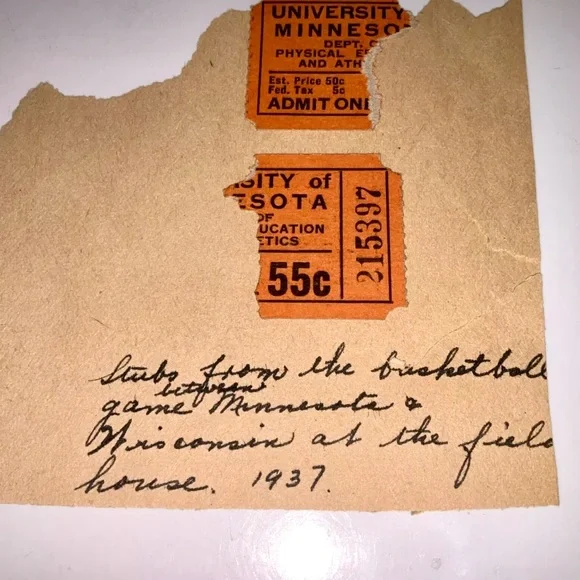 UNIVERSITY
MINNESO
DEPT. O
PHYSICAL E
AND ATH
Est. Price 50c
Fed. Tax 5c
ADMIT ONE
SITY of
ESOTA
OF
UCATION
ETICS
55c
215397
Stubs from the basketball
between
game Minnesota &
Wisconsin at the field
house. 1937.